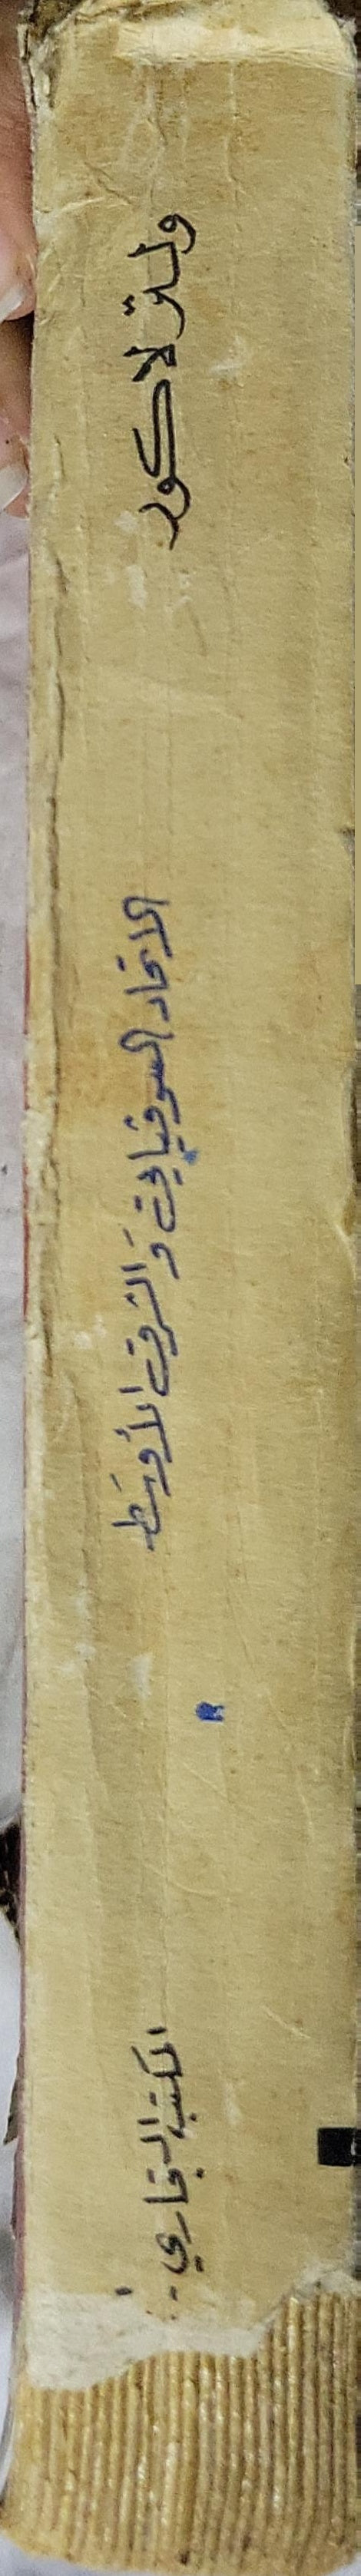 ولتر لاكور
الاتحاد السوفياتي والشرق الأوسط
المكتب التجاري